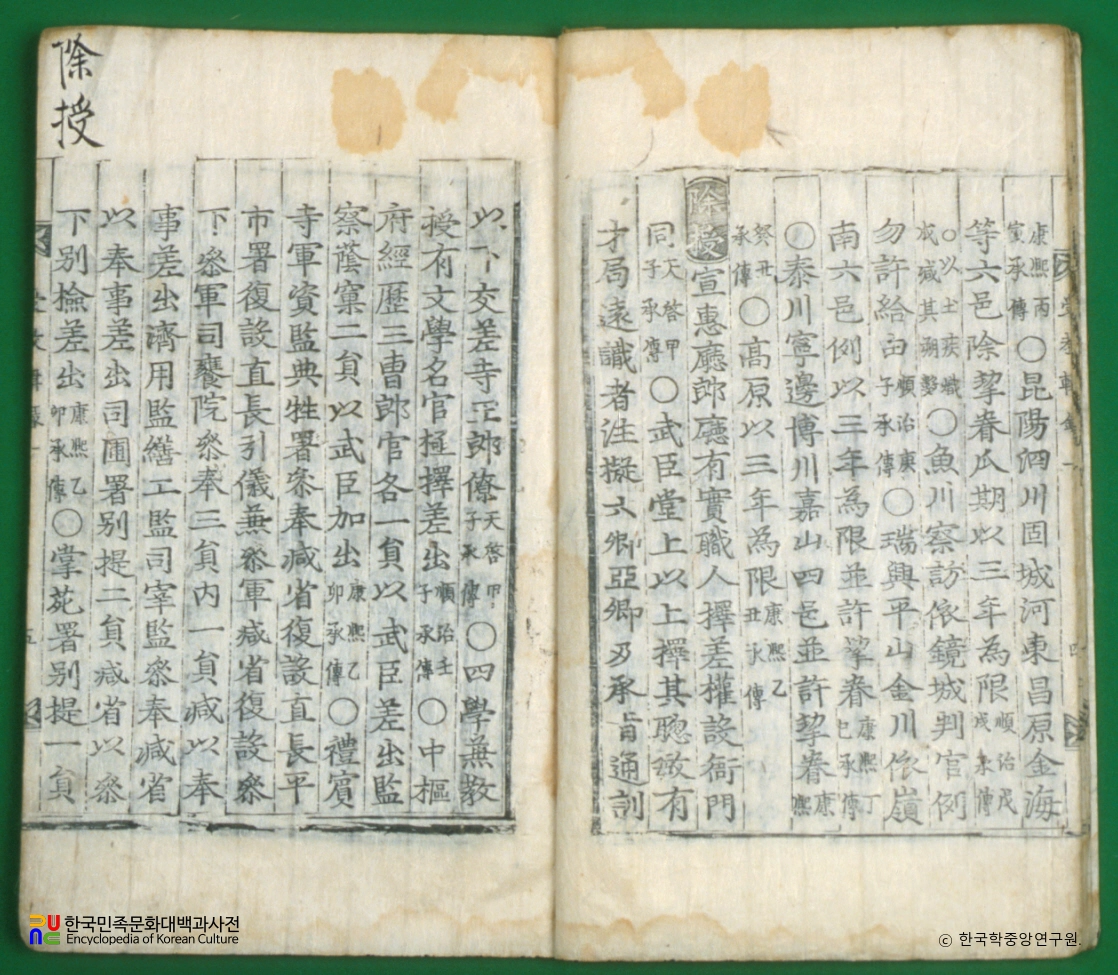 康熙丙寅承傳○昆陽泗川固城河東昌原金海
等六邑除挈眷瓜期以三年為限順治戊戌承傳
○魚川察訪依鏡城判官例
勿許給由順治庚子承傳○瑞興平山金川依嶺
南六邑例以三年為限並許挈眷康熙丁巳承傳
○泰川寧邊博川嘉山四邑並許挈眷康熙
癸丑承傳○高原以三年為限康熙乙丑承傳
除授宣惠廳郎廳有實職人擇差權設衙門
同天啓甲子承傳○武臣堂上以上擇其聰敏有
才局遠識者注擬六卿亞卿及承旨通訓
除授
以下交差寺正郎僚天啓甲子承傳○四學兼敎
授有文學名官極擇差出順治壬子承傳○中樞
府經歷三曹郎官各一員以武臣差出監
察蔭窠二員以武臣加出康熙乙卯承傳○禮賓
寺軍資監典牲署叅奉減省復設直長平
市署復設直長引儀兼叅軍減省復設叅
下叅軍司饔院叅奉三員內一員減以奉
事差出濟用監繕工監司宰監叅奉減省
以奉事差出司圃署別提二員減省以叅
下別檢差出康熙乙卯承傳○掌苑署別提一員
한국민족문화대백과사전
Encyclopedia of Korean Culture
ⓒ 한국학중앙연구원.